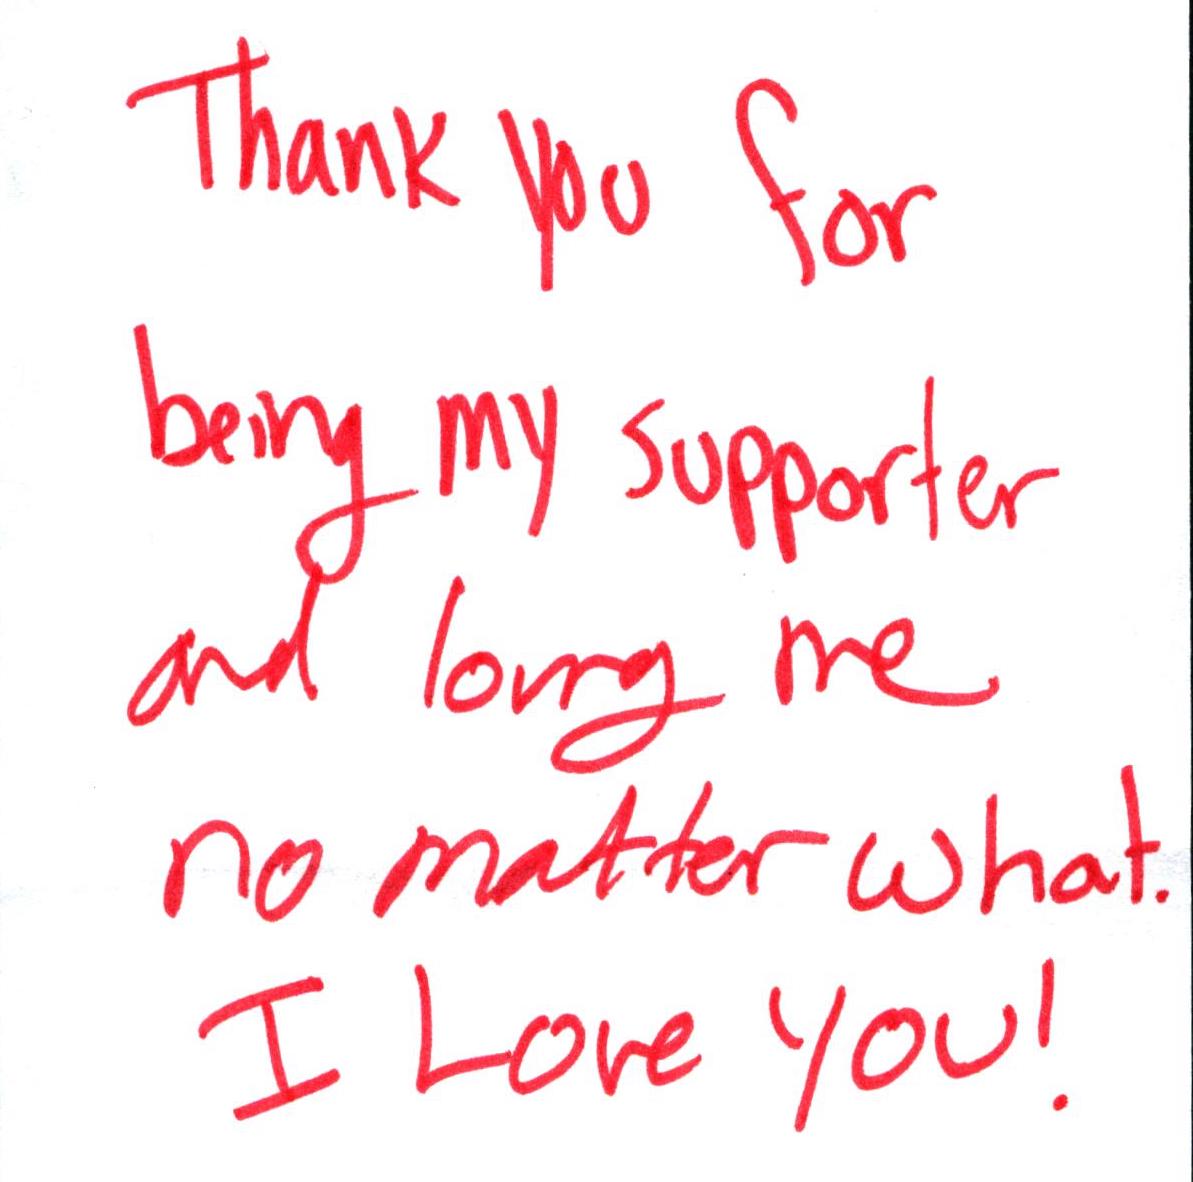 Thank you for
being my supporter
and loving me
no matter what.
I Love you!